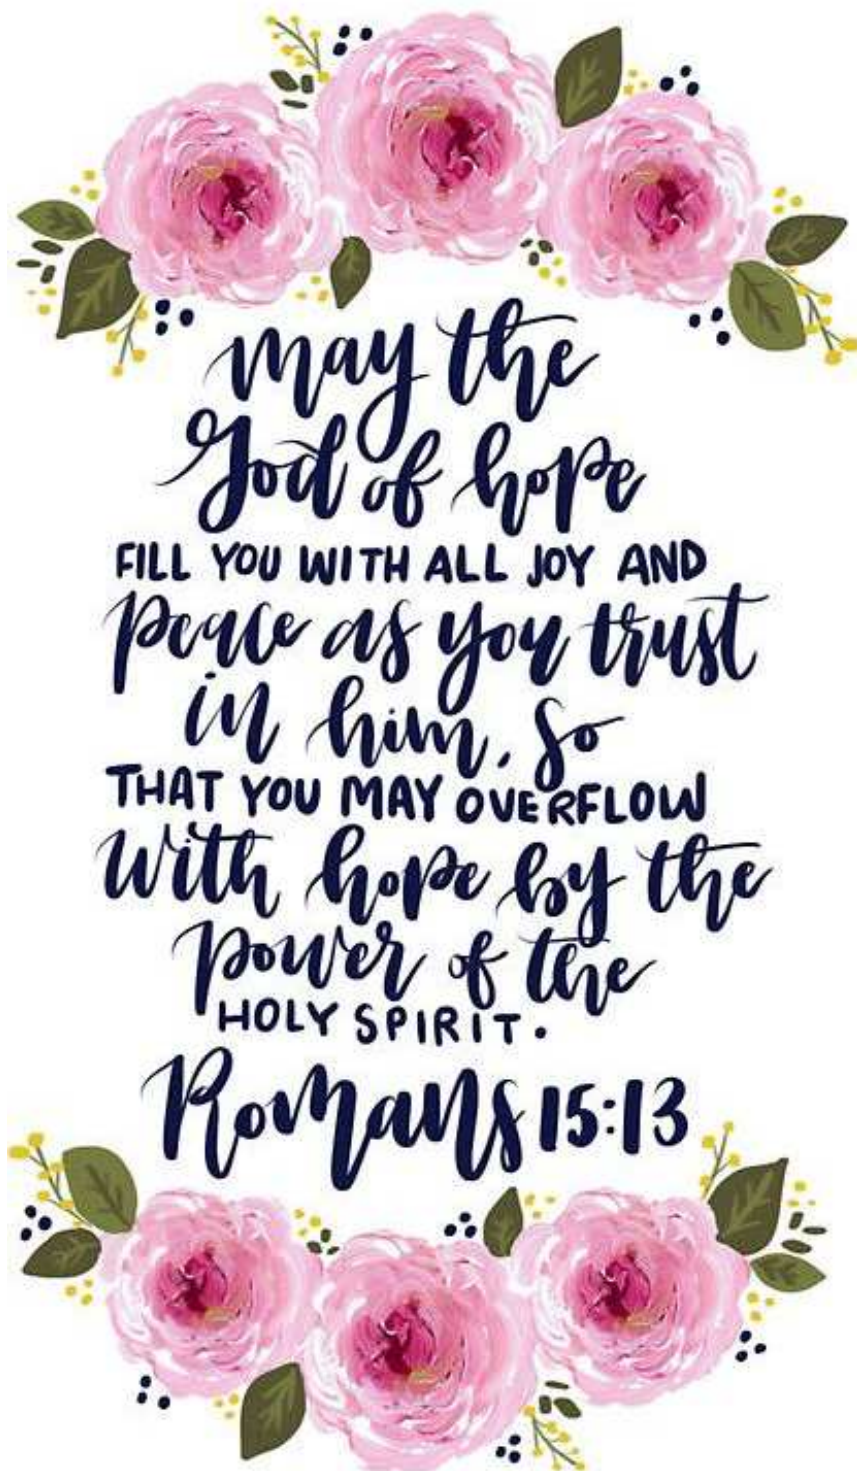 may the
God of hope
FILL YOU WITH ALL JOY AND
peace as you trust
in him, So
THAT YOU MAY OVERFLOW
with hope by the
power of the
HOLY SPIRIT.
Romans 15:13